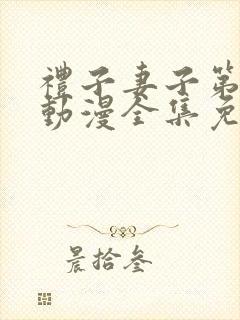 禮子妻子第
動漫全集免
晨拾叁